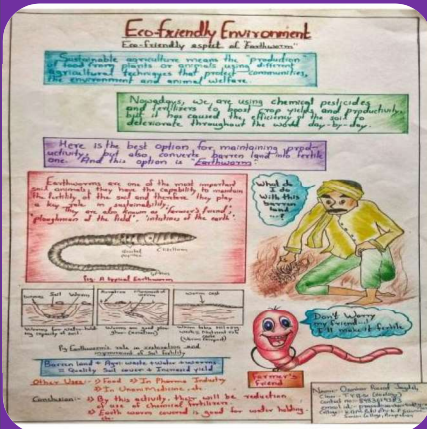 Eco-friendly Environment
Eco-friendly aspect of "Earthworm"
Sustainable agriculture means the production
of food from plants or animals using different
agricultural techniques that protect communities,
the environment and animal welfare.
Nowadays, we are using chemical pesticides
and fertilizers to boost crop yields and productivity
but it has caused the efficiency of the soil to
deteriorate throughout the world day-by-day.
Here is the best option for maintaining prod-
uctivity, but also, converts barren land into fertile
one. And this option is "Earthworm"
Earthworms are one of the most important
soil animals. They have the capability to maintain
the fertility of the soil and therefore they play
a key role in sustainability.
They are also known as 'farmer's friend',
'ploughman of the field', 'intestines of the earth'
Clitellum
Fig: A typical Earthworm
What do
I do
with this
barren
land
...?
Worm cast
Fig: Earthworm's role in
improvement of Soil fertility
Barren land + Agri waste + water + worms
= Quality Soil cover + Increased yield
Other Uses:- → Food → In Pharma Industry
→ In Medicine..etc
Conclusion:- → By this activity, there will be reduction
of use of chemical fertilizers.
→ Earth worm covered is good for water holding.
Don't Worry
my friend..!
I'll make it fertile
Farmer's
Friend
Name:-
Class:-